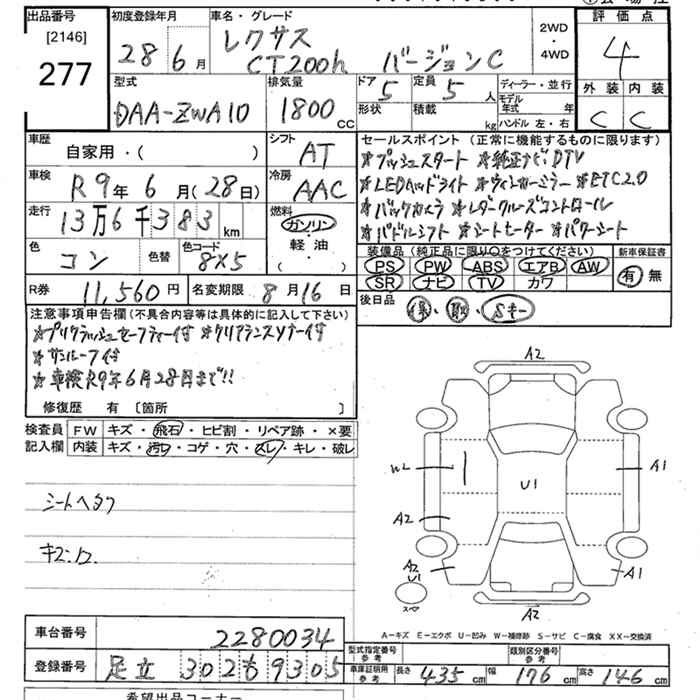 出品番号 初度登録年月 車名・グレード 評価点
[2146] 28年6月 レクサス 2WD・4WD 4
277 CT200h バージョンC
型式 排気量 ドア 5 定員 5人 ディーラー・並行 外装 内装
DAA-ZWA10 1800cc 形状 積載 kg モデル年式 年 C C
ハンドル 左・右
車歴 自家用・( ) シフト AT セールスポイント(正常に機能するものに限ります)
*プッシュスタート *純正ナビDTV
車検 R9年6月(28日) 冷房 AAC *LEDヘッドライト *ウィンカーミラー *ETC2.0
走行 13万6千383km 燃料 ガソリン・軽油・( ) *バックカメラ *レダークルーズコントロール
*パドルシフト *シートヒーター *パワーシート
色 コン 色替 色コード 8X5 装備品(純正品に限り○をつけてください) 新車保証書
PS PW ABS エアB AW 有・無
SR ナビ TV カワ
R券 11,560円 名変期限 8月16日 後日品 保・取・Sキー
注意事項申告欄(不具合内容等は具体的に記入して下さい)
*プリクラッシュセーフティー付 *クリアランスソナー付
*サンルーフ付
*車検R9年6月28日まで!!
修復歴 有 〔箇所 〕
検査員 FW キズ・飛石・ヒビ割・リペア跡・×要
記入欄 内装 キズ・汚れ・コゲ・穴・スレ・キレ・破レ
シートヘタリ
A2
W2 U1 A1
A2
A2 U1 A1
スペア
A2
A-キズ E-エクボ U-凹み W-補修跡 S-サビ C-腐食 XX-交換済
車台番号 2280034 型式指定番号 参考 類別区分番号 参考
登録番号 足立 302 も 9305 車庫証明用 参考 長さ 435cm 幅 176cm 高さ 146cm
希望出品コーナー